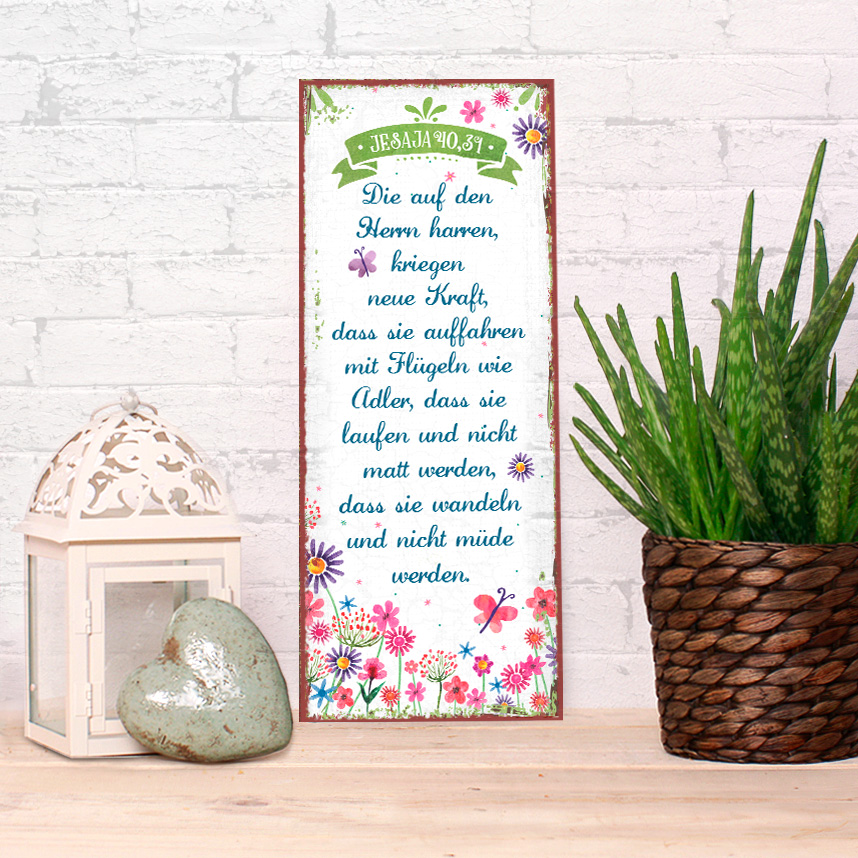 JESAJA 40,31
Die auf den
Herrn harren,
kriegen
neue Kraft,
dass sie auffahren
mit Flügeln wie
Adler, dass sie
laufen und nicht
matt werden,
dass sie wandeln
und nicht müde
werden.